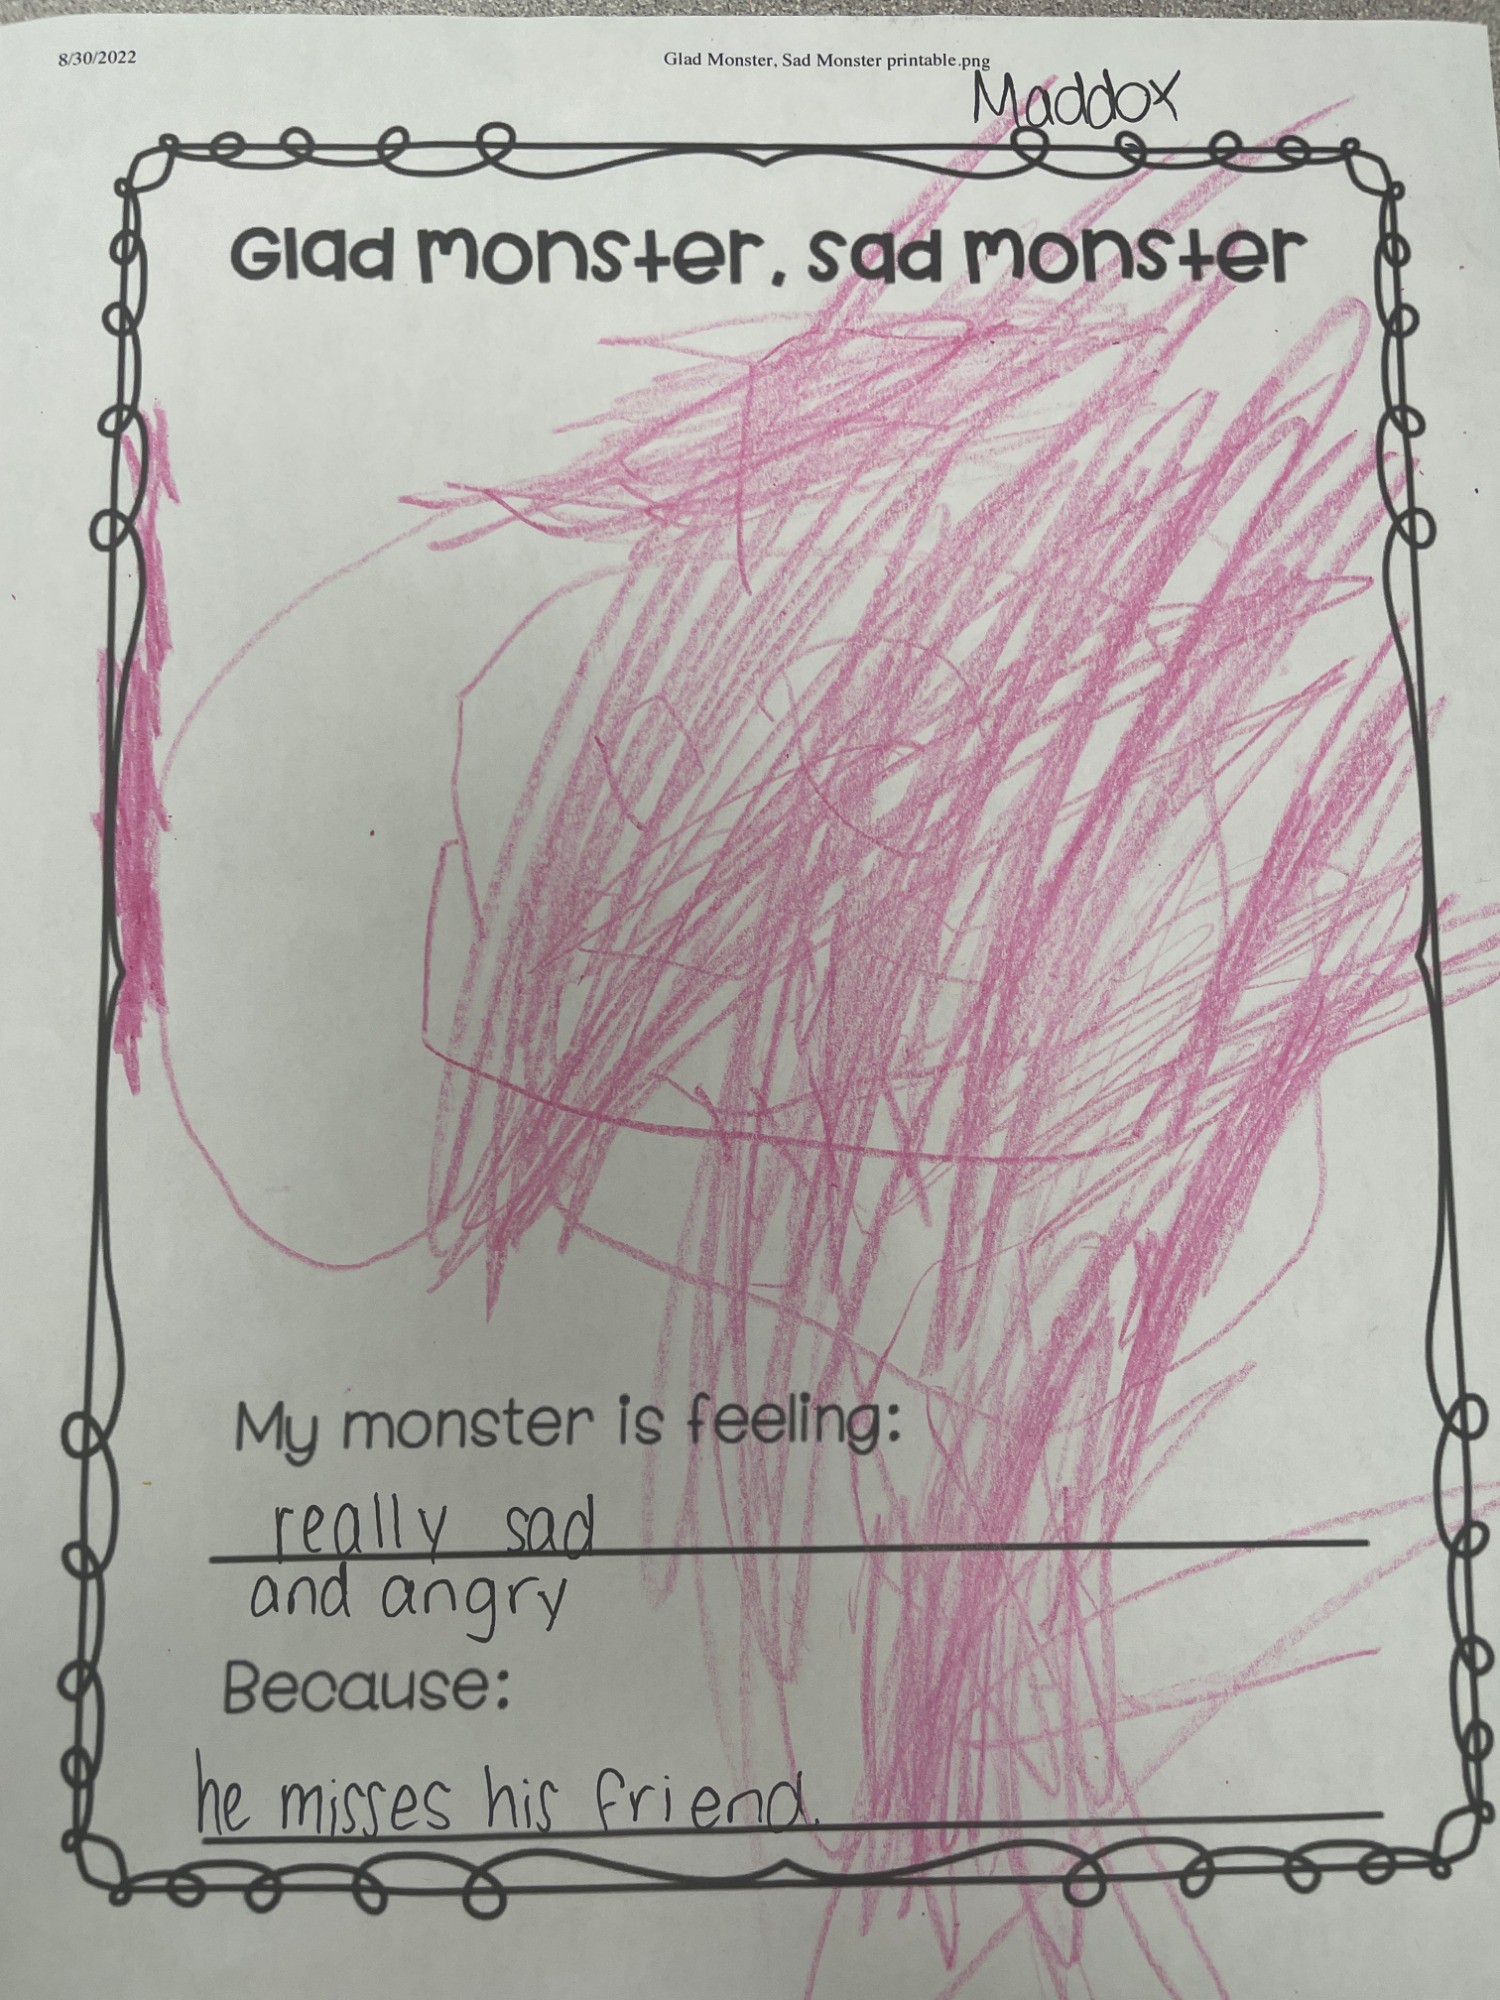 8/30/2022 Glad Monster, Sad Monster printable.png
Maddox
Glad monster, sad monster
My monster is feeling:
really sad
and angry
Because:
he misses his friend.